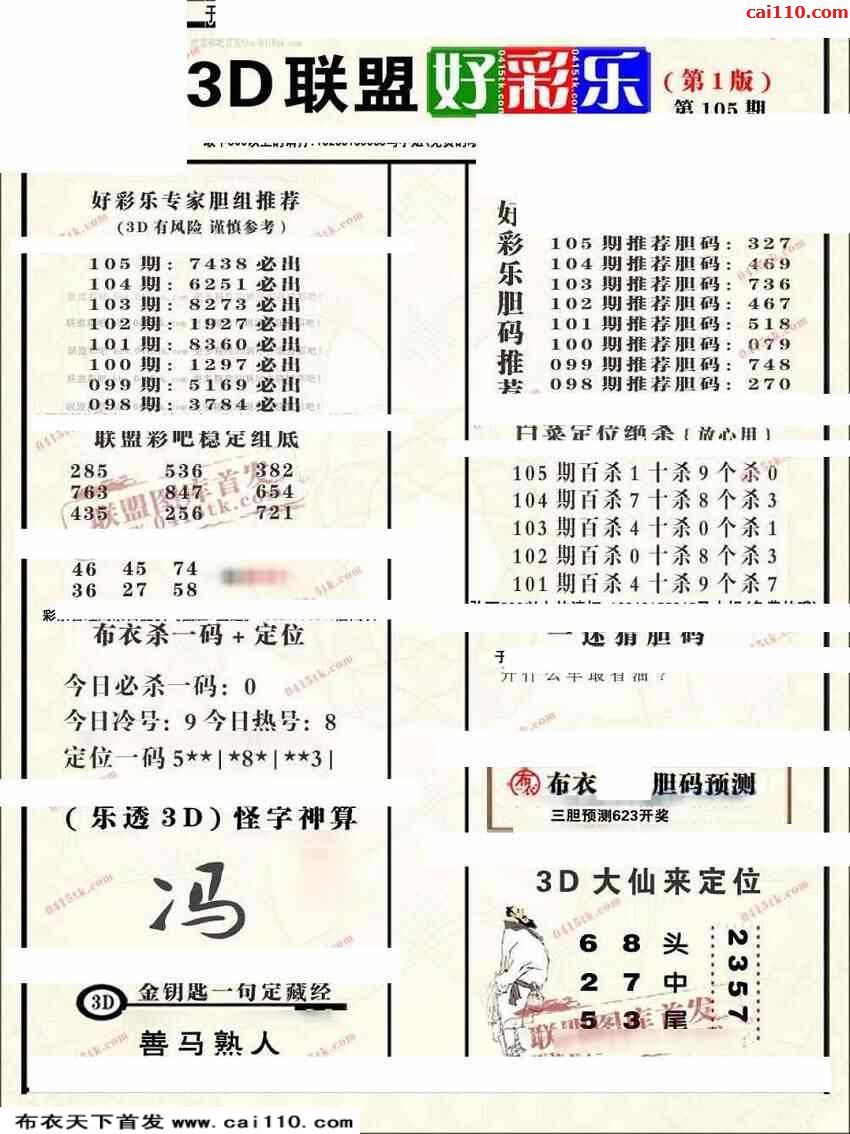 cai110.com
3D联盟好彩乐(第1版)
第105期
好彩乐专家胆组推荐
(3D有风险 谨慎参考)
105期: 7438必出
104期: 6251必出
103期: 8273必出
102期: 1927必出
101期: 8360必出
100期: 1297必出
099期: 5169必出
098期: 3784必出
联盟彩吧稳定组底
285 536 382
763 847 654
435 256 721
46 45 74
36 27 58
布衣杀一码+定位
今日必杀一码: 0
今日冷号: 9 今日热号: 8
定位一码 5**|*8*|**3|
(乐透3D)怪字神算
冯
3D 金钥匙一句定藏经
善马熟人
好彩乐胆码推荐
105期推荐胆码: 327
104期推荐胆码: 469
103期推荐胆码: 736
102期推荐胆码: 467
101期推荐胆码: 518
100期推荐胆码: 079
099期推荐胆码: 748
098期推荐胆码: 270
白菜定位绝杀(放心用)
105期百杀1十杀9个杀0
104期百杀7十杀8个杀3
103期百杀4十杀0个杀1
102期百杀0十杀8个杀3
101期百杀4十杀9个杀7
一迷猜胆码
布衣 胆码预测
三胆预测623开奖
3D大仙来定位
6 8 头
2 7 中
5 3 尾
2357
联盟图库首发
0415tk.com
布衣天下首发 www.cai110.com